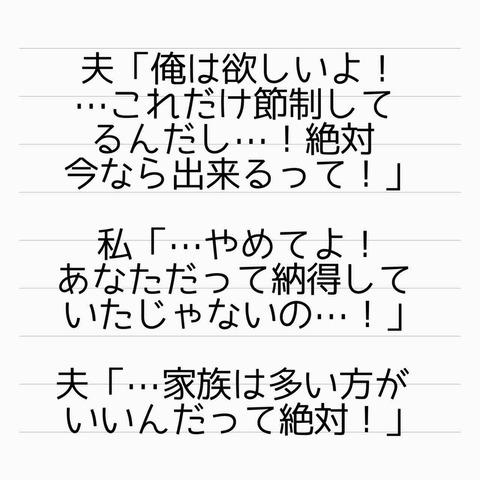 夫「俺は欲しいよ！
…これだけ節制して
るんだし…！絶対
今なら出来るって！」
私「…やめてよ！
あなただって納得して
いたじゃないの…！」
夫「…家族は多い方が
いいんだって絶対！」